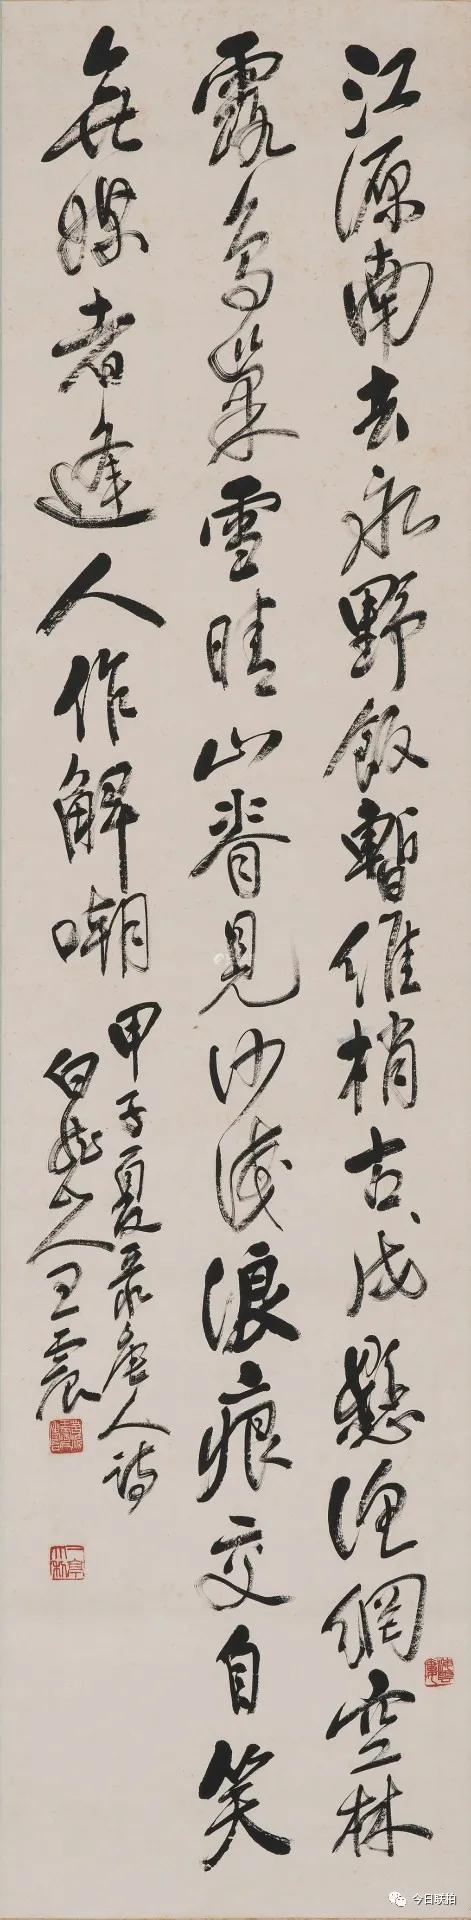 江源南去永野飯暫維梢古戍懸漁網空林
露鳥巢雪晴山脊見沙淺浪痕交自笑
無媒者逢人作解嘲
甲子夏录唐人詩
白龍山人王震
今日联拍